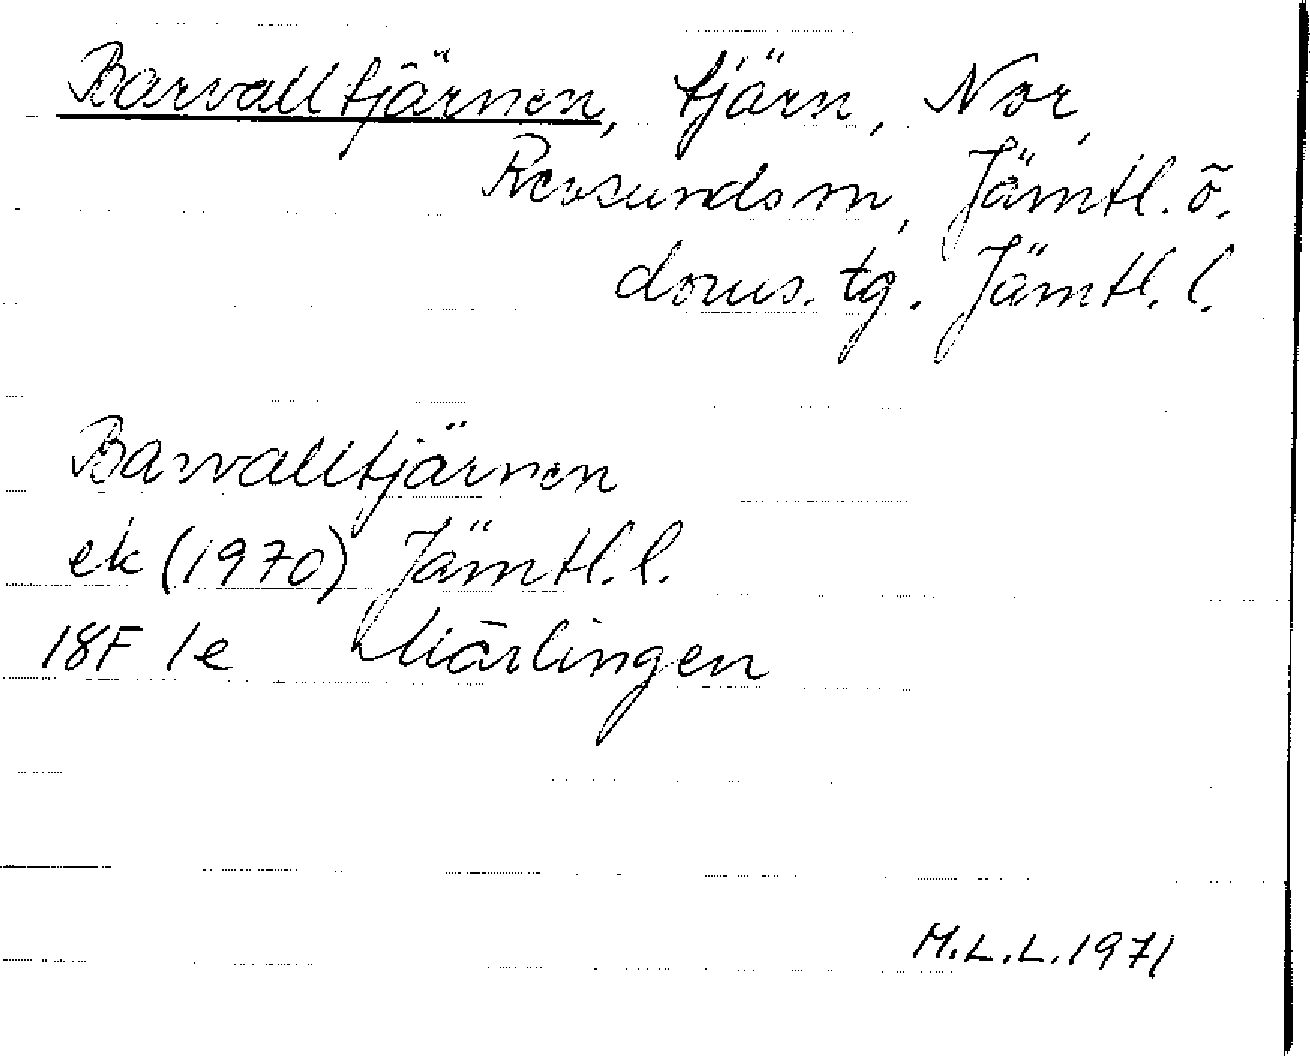 Barvalltjärnen, tjärn, Nor,
Revsunds m, Jämtl. ö.
doms. tg. Jämtl. l.
Barvalltjärnen
ek (1970) Jämtl. l.
18F 1e Märlingen
M.L.L. 1971